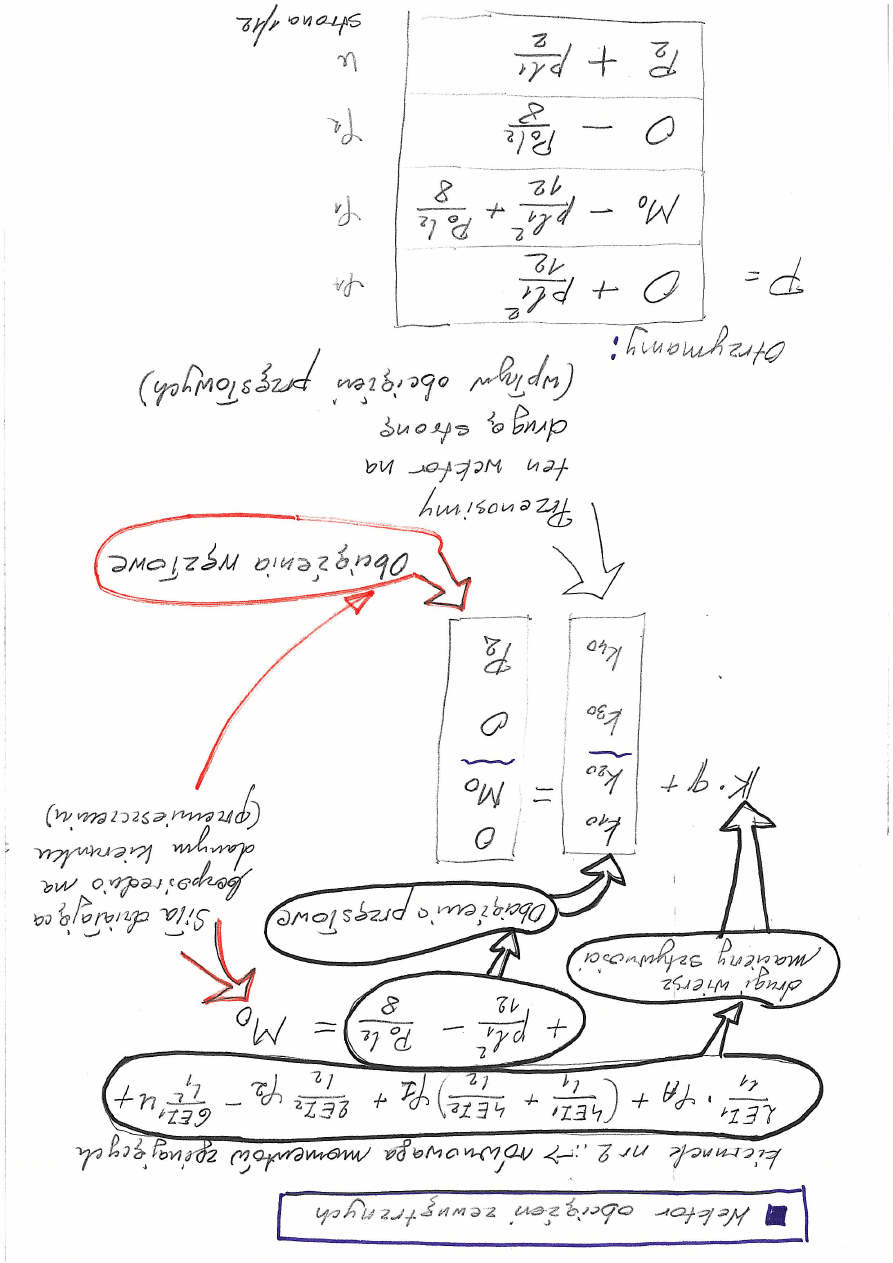 ■ Wektor obciążeń zewnętrznych
kierunek nr 2 :→ równowaga momentów zginających
2EI₁/l₁ · φA + (4EI₁/l₁ + 4EI₂/l₂)φ1 + 2EI₂/l₂ φ2 − 6EI₁/l₁² u +
+ pl₁²/12 − P₀l₂/8 = M₀
drugi wiersz
macierzy sztywności
Obciążenie przęsłowe
Siła działająca
bezpośrednio na
danym kierunku
(przemieszczeniu)
K·q + 
k10
k20
k30
k40
=
0
M₀
0
P₂
Obciążenia węzłowe
Przenosimy
ten wektor na
drugą stronę
(wpływ obciążeń przęsłowych)
Otrzymamy:
P =
0 + pl₁²/12 φA
M₀ − pl₁²/12 + P₀l₂/8 φ1
0 − P₀l₂/8 φ2
P₂ + pl₁/2 u
strona 1/12